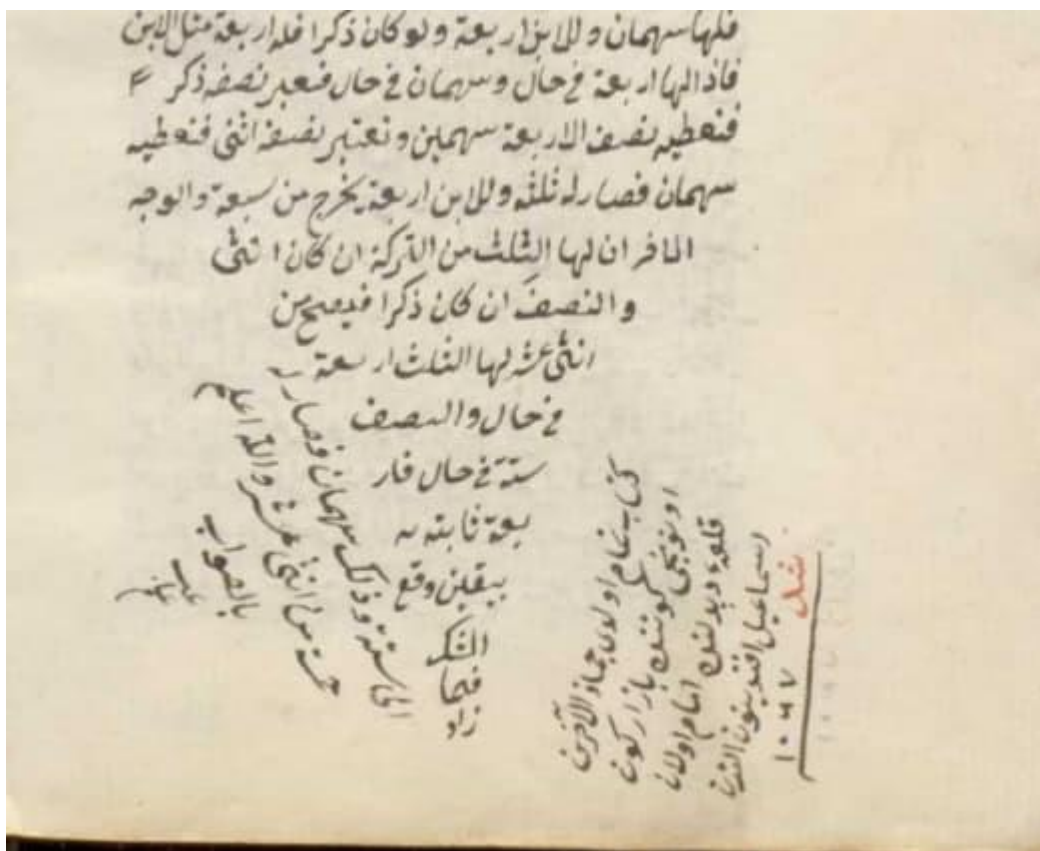 فلها سهمان وللابن اربعة ولو كان ذكرا فله اربعة مثل الابن
فاذا لها اربعة في حال وسهمان في حال فنعبر نصفه ذكر
فنعطيه نصف الاربعة سهمين ونعتبر نصفه انثى فنعطيه
سهمان فصار له ثلثه وللابن اربعة يخرج من سبعة والوجه
ان لها الثلث من التركة ان كان انثى
والنصف ان كان ذكرا فيصح من
اثنى عشر لها الثلث اربعة
في حال والنصف
ستة في حال فار
بعة ثابته له
بيقين وقع
الشك
فيما
زاد
الى ستة وذلك سهمان فصار له
خمسة من اثنى عشر والله اعلم
بالصواب
كتاب تمام اولدى جماذ الآخرين
اون كوننده بازار كون
قلعه امام اولان
اسماعيل افندينون
١٠٩٧